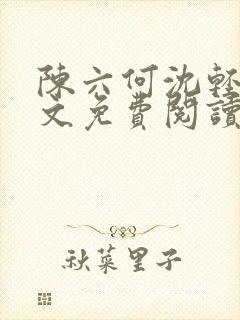 陳六何沈輕
文免費閱讀
秋菜里子